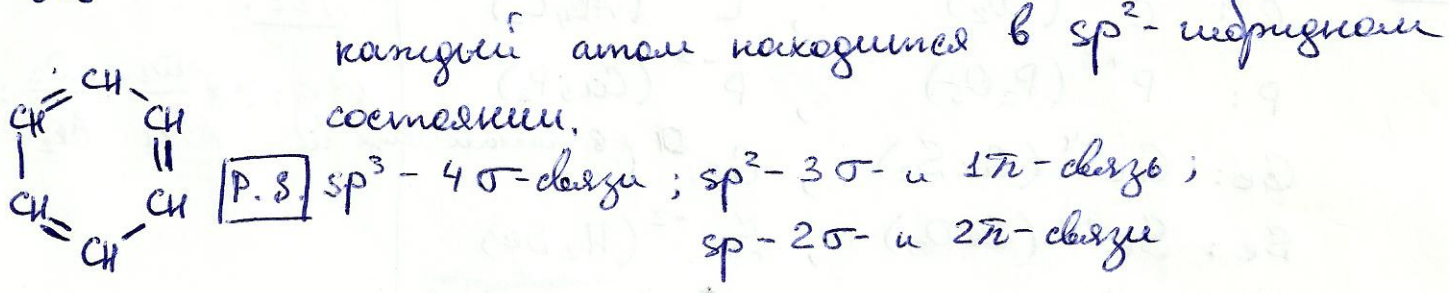 каждый атом находится в sp²-гибридном
состоянии.
CH
CH CH
CH CH
CH
P.S. sp³ - 4σ-связи; sp² - 3σ- и 1π-связь;
sp - 2σ- и 2π-связи